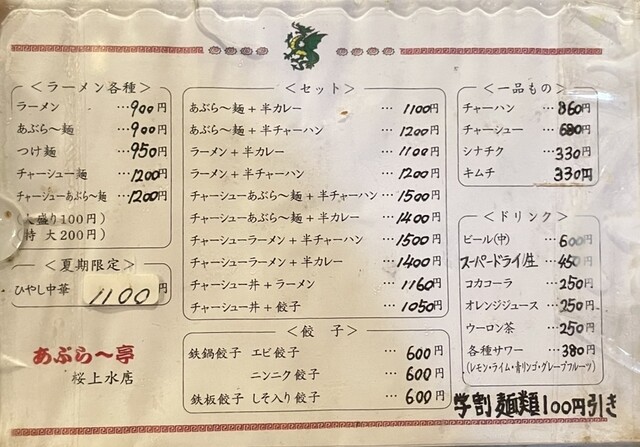 ＜ラーメン各種＞
ラーメン …900円
あぶら〜麺 …900円
つけ麺 …950円
チャーシュー麺 …1200円
チャーシューあぶら〜麺 …1200円
(大盛り100円)
(特 大200円)
＜夏期限定＞
ひやし中華 1100円
あぶら〜亭
桜上水店
＜セット＞
あぶら〜麺＋半カレー … 1100円
あぶら〜麺＋半チャーハン … 1200円
ラーメン＋半カレー … 1100円
ラーメン＋半チャーハン … 1200円
チャーシューあぶら〜麺＋半チャーハン … 1500円
チャーシューあぶら〜麺＋半カレー … 1400円
チャーシューラーメン＋半チャーハン … 1500円
チャーシューラーメン＋半カレー … 1400円
チャーシュー丼＋ラーメン … 1160円
チャーシュー丼＋餃子 … 1050円
＜餃 子＞
鉄鍋餃子 エビ餃子 … 600円
ニンニク餃子 … 600円
鉄板餃子 しそ入り餃子 … 600円
＜一品もの＞
チャーハン … 860円
チャーシュー … 680円
シナチク … 330円
キムチ … 330円
＜ドリンク＞
ビール(中) … 600円
スーパードライ/生 … 450円
コカコーラ … 250円
オレンジジュース … 250円
ウーロン茶 … 250円
各種サワー … 380円
(レモン・ライム・青リンゴ・グレープフルーツ)
学割 麺類100円引き